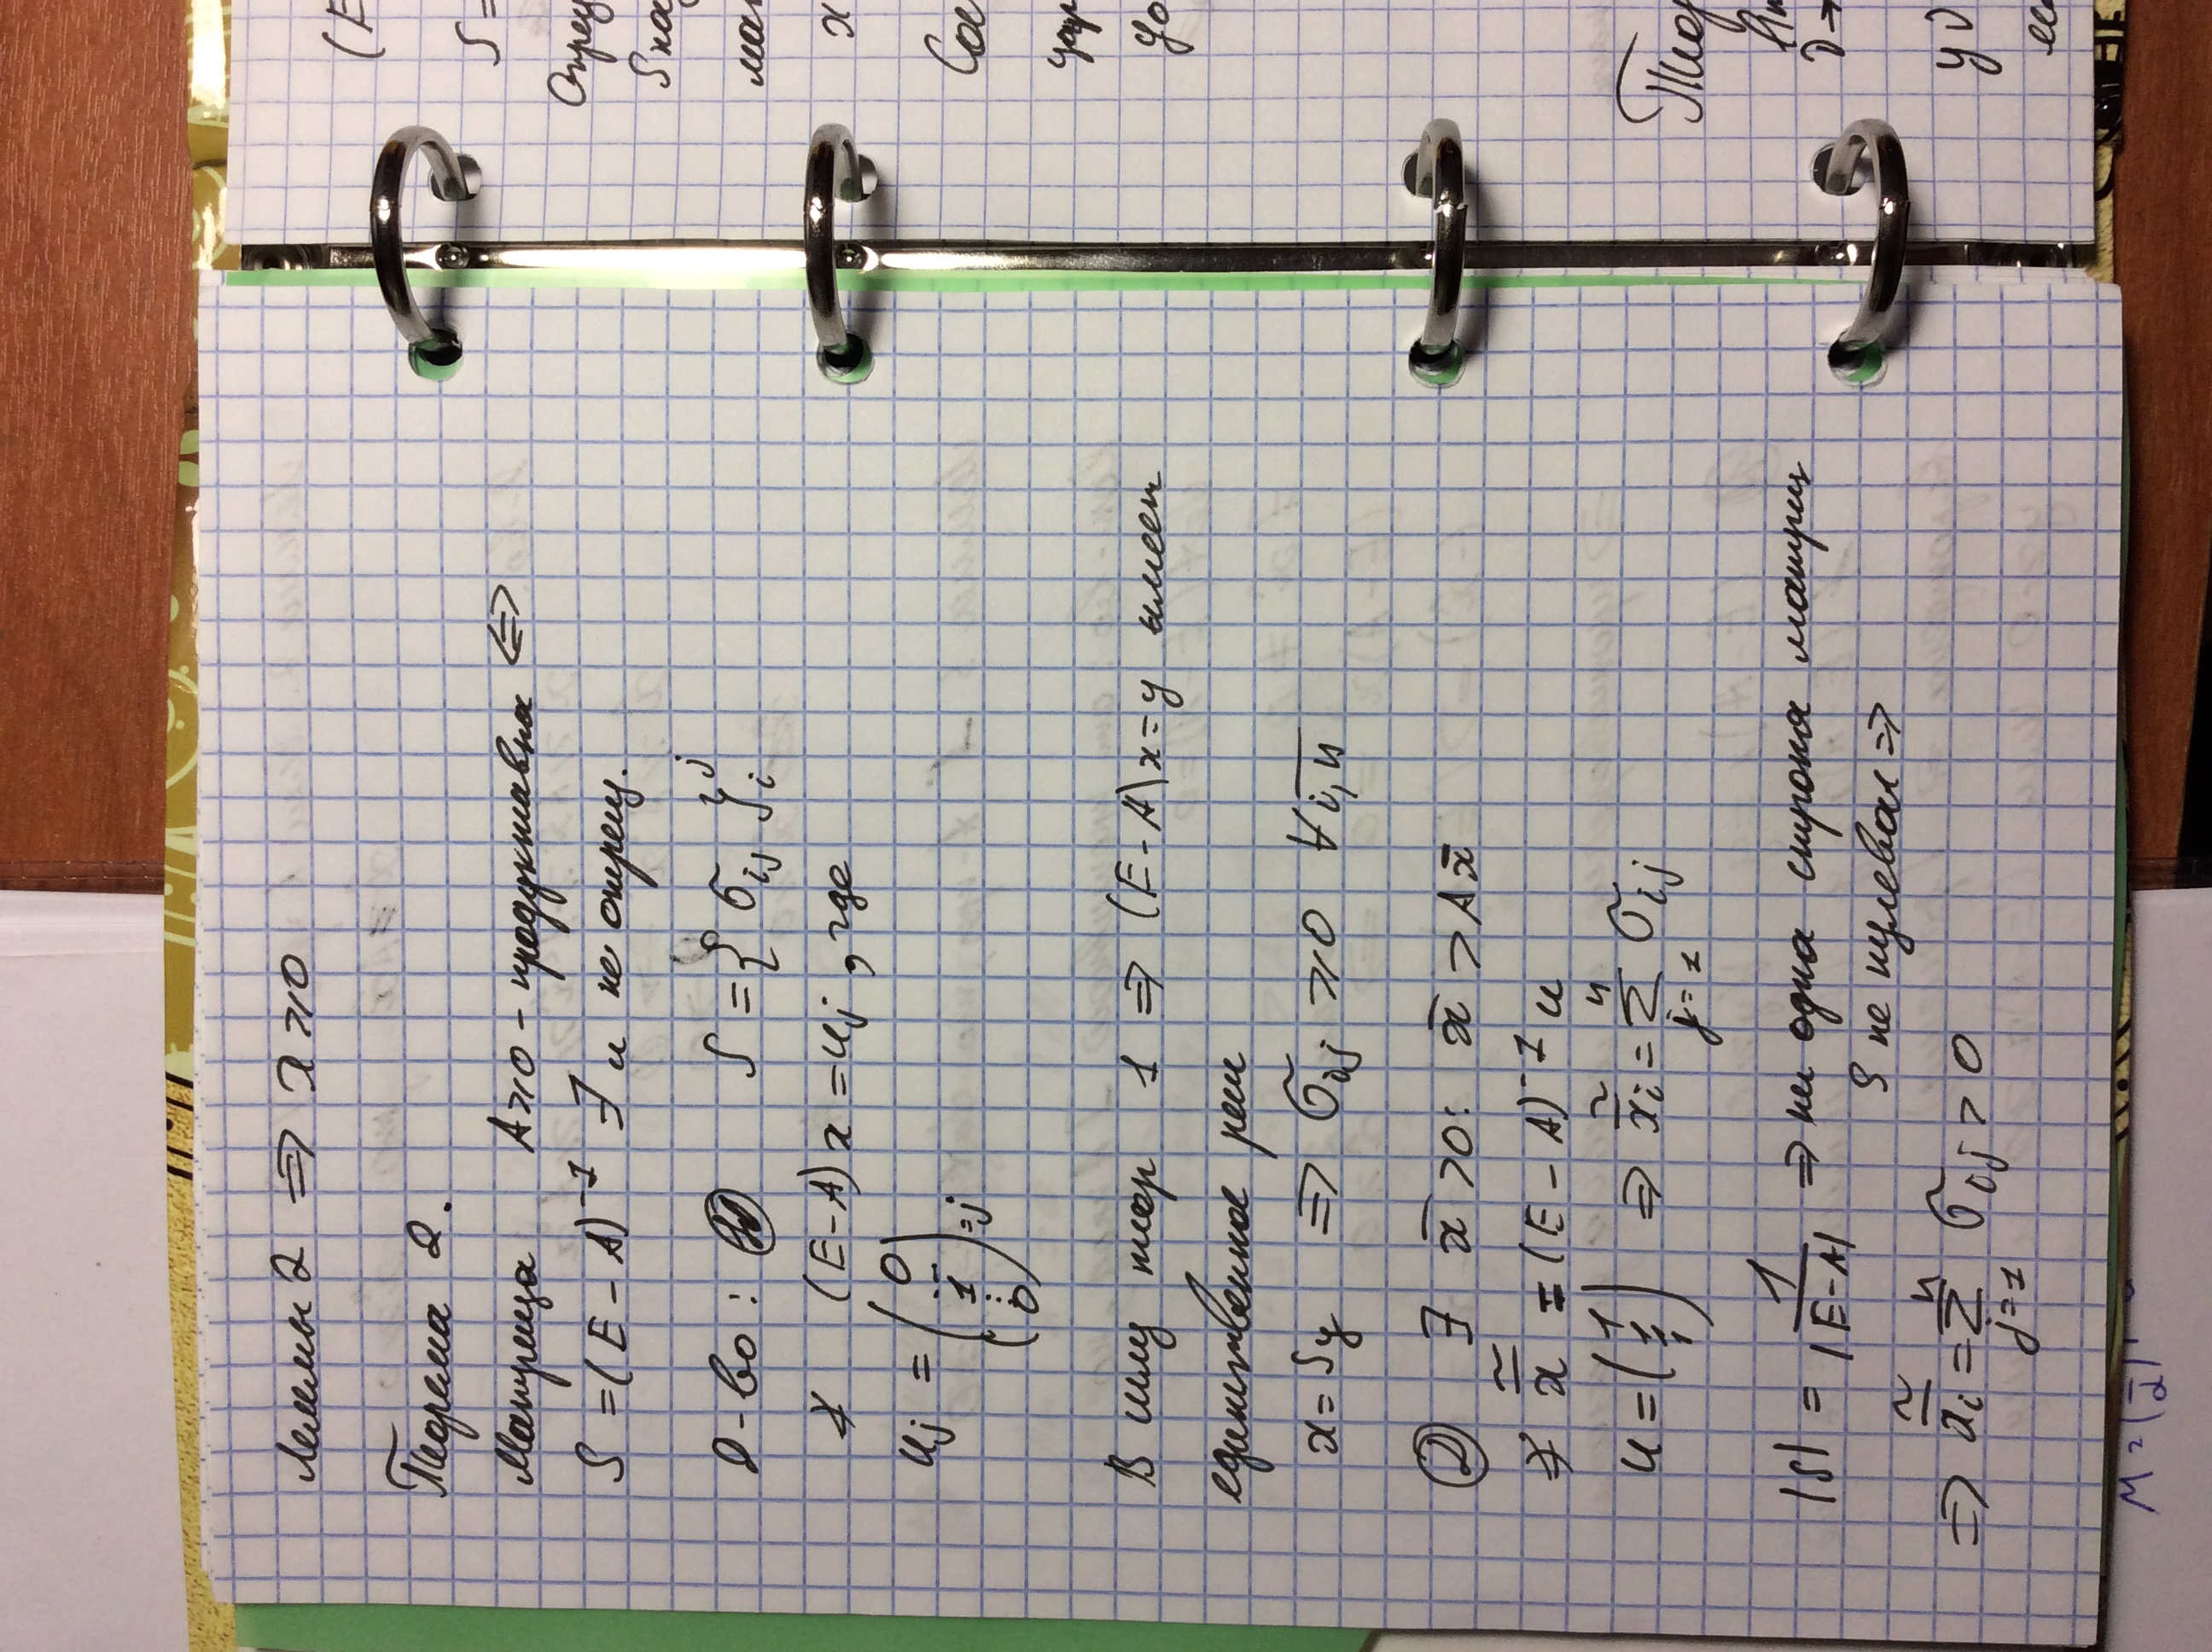 Леммы 2 ⇒ x ⩾ 0
Теорема 2.
Матрица A⩾0 – продуктивна ⟺
S = (E – A)⁻¹ ∃ и не отриц.
Д-во: S = { σij }i j
(E–A) x = uj , где
uj = ( 0 ... 1 ⋮ 0 ) = j
В силу теор 1 ⇒ (E–A)x = y имеет
единственное реш
x = Sy ⇒ σij ⩾ 0 ∀ i, n
② ∃ x̄ > 0: x̄ > A x̄
x̃ = (E – A)⁻¹ u
u = ( 1 1 1 ) ⇒ x̃i = Σ j=1 n σij
|S| = 1 / |E–A| ⇒ ни одна строка матриц
S не нулевая ⇒
⇒ x̃i = Σ j=1 n σij > 0
(E
S =
x
Теор
D →